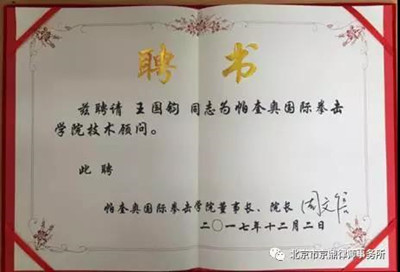 聘书
兹聘请 王国钧 同志为帕奎奥国际拳击
学院技术顾问。
此聘
帕奎奥国际拳击学院董事长、院长
二〇一七年十二月二日
北京市京鼎律师事务所